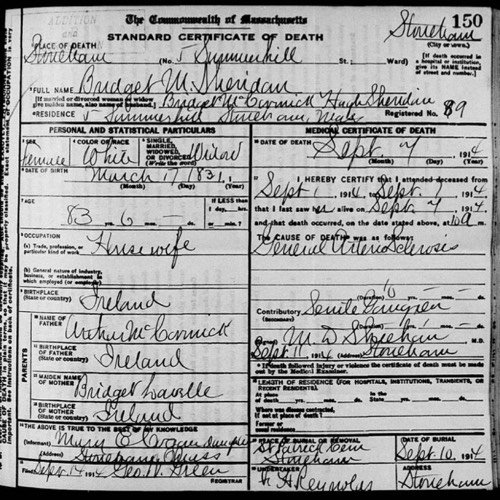 ADDITION
The Commonwealth of Massachusetts
STANDARD CERTIFICATE OF DEATH
Stoneham
150
(City or town)
PLACE OF DEATH
Stoneham (No. 5 Summerhill St. Ward)
(If death occurred in a hospital or institution, give its NAME instead of street and number.)
FULL NAME Bridget M. Sheridan
(If married or divorced woman or widow give maiden name, also name of husband.) Bridget McCormick Hugh Sheridan
RESIDENCE Summerhill Stoneham, Mass
Registered No. 89
PERSONAL AND STATISTICAL PARTICULARS
SEX female
COLOR OR RACE White
SINGLE, MARRIED, WIDOWED, OR DIVORCED (Write the word) Widow
DATE OF BIRTH March 1 1831
(Month) (Day) (Year)
AGE
83 6
If LESS than 1 day, hrs. or min.?
OCCUPATION
(a) Trade, profession, or particular kind of work Housewife
(b) General nature of industry, business, or establishment in which employed (or employer)
BIRTHPLACE (State or country) Ireland
PARENTS
NAME OF FATHER Arthur McCormick
BIRTHPLACE OF FATHER (State or country) Ireland
MAIDEN NAME OF MOTHER Bridget Lavelle
BIRTHPLACE OF MOTHER (State or country) Ireland
THE ABOVE IS TRUE TO THE BEST OF MY KNOWLEDGE
(Informant) Mary E
(Address) Stoneham, Mass
Filed Sept. 14 1914 Geo. N. Green
REGISTRAR
MEDICAL CERTIFICATE OF DEATH
DATE OF DEATH Sept 7 1914
(Month) (Day) (Year)
I HEREBY CERTIFY that I attended deceased from
Sept 1 1914 to Sept 7 1914
that I last saw her alive on Sept 7 1914
and that death occurred, on the date stated above, at 10 a m.
The CAUSE OF DEATH was as follows:
General Arteriosclerosis
(Duration) yrs. mos. ds.
Contributory (Secondary) Senile Gangrene
(Duration) yrs. mos. ds.
M.D.
Sept 11 1914 (Address) Stoneham
If death followed injury or violence the certificate of death must be made by the Medical Examiner.
LENGTH OF RESIDENCE (FOR HOSPITALS, INSTITUTIONS, TRANSIENTS, OR RECENT RESIDENTS)
At place of death yrs. mos. ds.
PLACE OF BURIAL OR REMOVAL St Patrick Cem Stoneham
DATE OF BURIAL Sept 10 1914
UNDERTAKER Reynolds
(Address) Stoneham